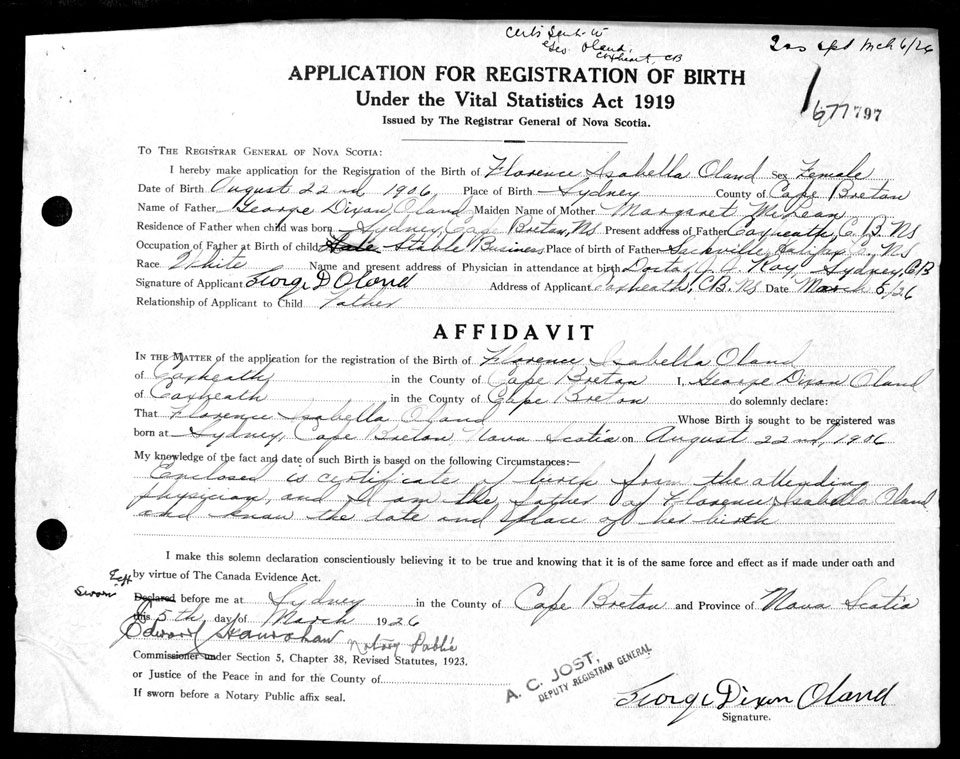 Certs Sent to
Geo. Oland,
Coxheath, CB
Mch 6/26
APPLICATION FOR REGISTRATION OF BIRTH
Under the Vital Statistics Act 1919
Issued by The Registrar General of Nova Scotia.
677 797
TO THE REGISTRAR GENERAL OF NOVA SCOTIA:
I hereby make application for the Registration of the Birth of Florence Isabella Oland Sex Female
Date of Birth August 22nd, 1906, Place of Birth Sydney County of Cape Breton
Name of Father George Dixon Oland Maiden Name of Mother Margaret McLean
Residence of Father when child was born Sydney, Cape Breton, NS Present address of Father Coxheath, C.B. NS
Occupation of Father at Birth of child Stable Business Place of birth of Father Sackville, Halifax Co., NS
Race White Name and present address of Physician in attendance at birth Doctor Kay, Sydney, CB
Signature of Applicant George D Oland Address of Applicant Coxheath, CB. NS Date March 5/26
Relationship of Applicant to Child Father
AFFIDAVIT
IN THE MATTER of the application for the registration of the Birth of Florence Isabella Oland
of Coxheath in the County of Cape Breton I, George Dixon Oland
of Coxheath in the County of Cape Breton do solemnly declare:
That Florence Isabella Oland Whose Birth is sought to be registered was
born at Sydney, Cape Breton Nova Scotia on August 22nd, 1906
My knowledge of the fact and date of such Birth is based on the following Circumstances:—
Enclosed is certificate of birth from the attending
physician, and I am the father of Florence Isabella Oland
and know the date and place of her birth
I make this solemn declaration conscientiously believing it to be true and knowing that it is of the same force and effect as if made under oath and
by virtue of The Canada Evidence Act.
Sworn
Declared before me at Sydney in the County of Cape Breton and Province of Nova Scotia
this 5th day of March 1926
Edward Notary Public
Commissioner under Section 5, Chapter 38, Revised Statutes, 1923.
or Justice of the Peace in and for the County of
If sworn before a Notary Public affix seal.
A. C. JOST,
DEPUTY REGISTRAR GENERAL
George Dixon Oland
Signature.